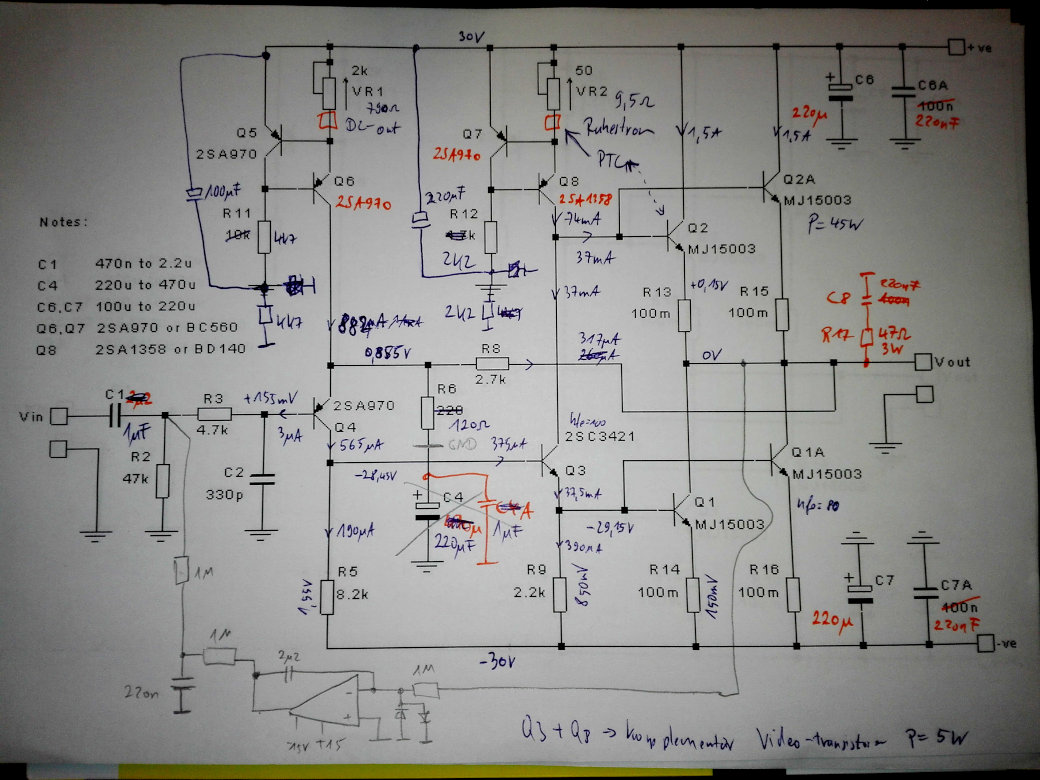 30V
+ve
2k
VR1
790Ω
DC-out
50
VR2
9,5Ω
Ruhestrom
PTC
1,5A
1,5A
C6
220µ
C6A
100n
220nF
Q5
2SA970
Q6
2SA970
Q7
2SA970
Q8
2SA1358
Q2A
MJ15003
P=45W
100µF
220µF
R11
10k
4k7
4k7
R12
2k2
2k2
74mA
37mA
37mA
Q2
MJ15003
+0,15V
R13
100m
R15
100m
C8
220nF
100n
R17
47Ω
3W
Notes:
C1 470n to 2.2u
C4 220u to 470u
C6,C7 100u to 220u
Q6,Q7 2SA970 or BC560
Q8 2SA1358 or BD140
0,855V
R8
2.7k
317µA
0V
Vout
Vin
C1
1µF
R3
4.7k
+155mV
3µA
2SA970
Q4
565µA
R6
220
120Ω
GND
375µA
hfe=100
2SC3421
Q3
R2
47k
C2
330p
-28,45V
C4
220µF
1µF
37,5mA
-29,15V
Q1
MJ15003
Q1A
MJ15003
hfe=80
190µA
390µA
1,55V
R5
8.2k
R9
2.2k
850mV
R14
100m
150mV
R16
100m
C7
220µ
C7A
100n
220nF
-30V
-ve
1M
1M
2µ2
1M
220n
-
+
-15V +15
Q3 + Q8 → Komplementär Video-transistor P= 5W